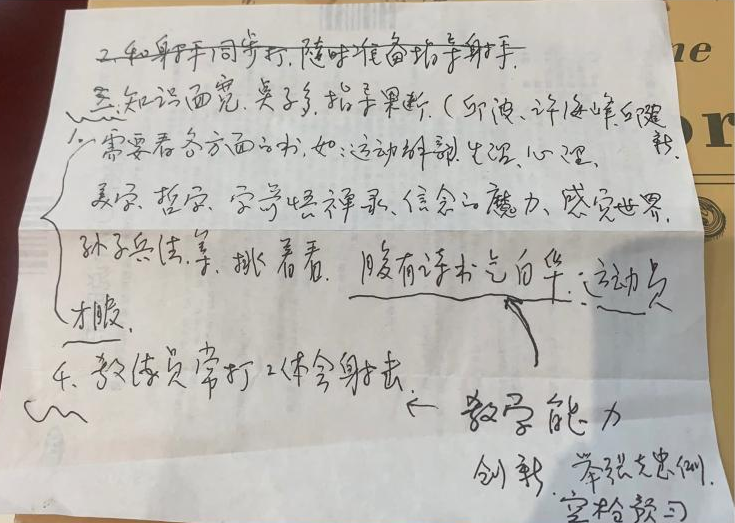 2.和射手同步打,随时准备指导射手.
三.知识面宽.点子多,指导果断.(邱波、许海峰,邱健新.
1.需要看各方面的书,如:运动解剖.生理、心理、
美学、哲学、学箭悟禅录、信念的魔力、感觉世界.
孙子兵法.等.挑着看. 腹有诗书气自华.运动员
才服.
4.教练员常打,体会射击.
← 教学能力
创新. 举张克忠例.
空枪预习
me
or